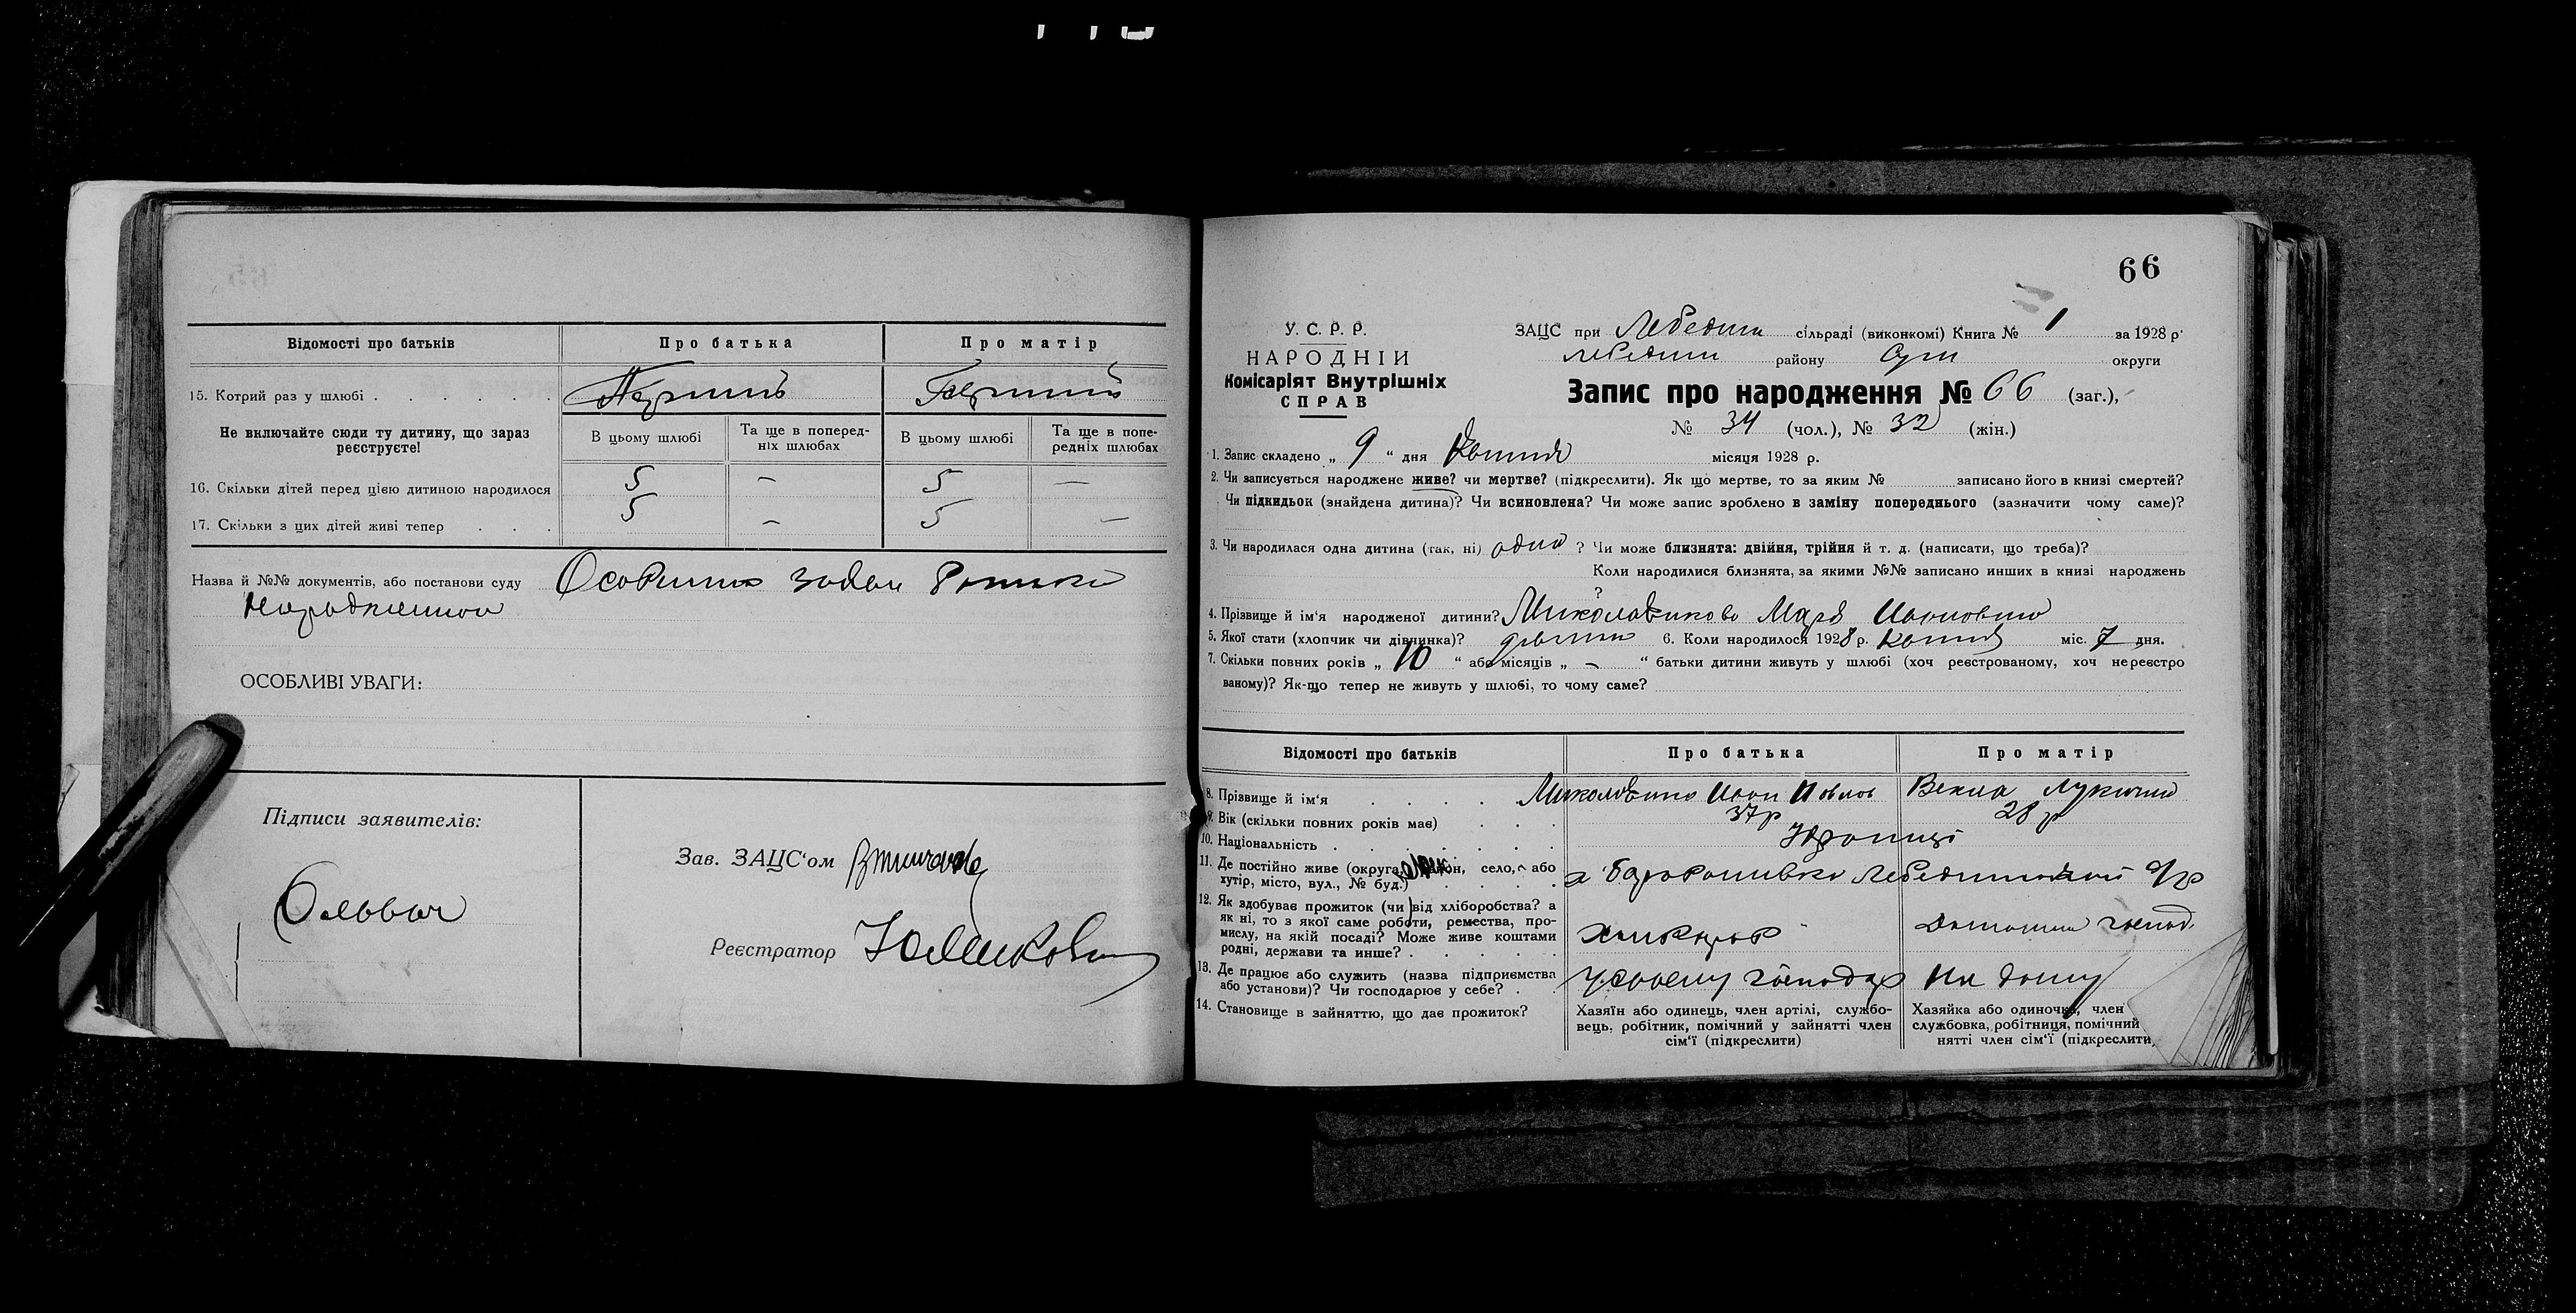 Відомості про батьків Про батька Про матір
15. Котрий раз у шлюбі Перший Перший
Не включайте сюди ту дитину, що зараз реєструєте!
В цьому шлюбі Та ще в поперед-ніх шлюбах В цьому шлюбі Та ще в попе-редніх шлюбах
16. Скільки дітей перед цією дитиною народилося 5 – 5 —
17. Скільки з цих дітей живі тепер 5 – 5 –
Назва й №№ документів, або постанови суду
ОСОБЛИВІ УВАГИ:
Підписи заявителів:
Зав. ЗАЦС'ом
Реєстратор
66
У. С. Р. Р.
НАРОДНІЙ
Комісаріят Внутрішніх
СПРАВ
ЗАЦС при Лебедин сільраді (виконкомі) Книга № 1 за 1928 р.
Лебедин району Сум округи
Запис про народження № 66 (заг.),
№ 34 (чол.), № 32 (жін.)
1. Запис складено „ 9 “ дня Квітня місяця 1928 р.
2. Чи записується народжене живе? чи мертве? (підкреслити). Як що мертве, то за яким № записано його в книзі смертей?
Чи підкидьок (знайдена дитина)? Чи всиновлена? Чи може запис зроблено в заміну попереднього (зазначити чому саме)?
3. Чи народилася одна дитина (так, ні) одна ? Чи може близнята: двійня, трійня й т. д. (написати, що треба)?
Коли народилися близнята, за якими №№ записано инших в книзі народжень
?
4. Прізвище й ім'я народженої дитини?
5. Якої стати (хлопчик чи дівчинка)? 6. Коли народилося 1928 р. Квітня міс. 7 дня.
7. Скільки повних років „ 10 “ або місяців „ – “ батьки дитини живуть у шлюбі (хоч реєстрованому, хоч нереєстро
ваному)? Як-що тепер не живуть у шлюбі, то чому саме?
Відомості про батьків Про батька Про матір
8. Прізвище й ім'я Іван Павлов Векла
9. Вік (скільки повних років має) 37р 28 р
10. Національність Українці
11. Де постійно живе (округа, район, село, або
хутір, місто, вул., № буд.)
12. Як здобуває прожиток (чи від хліборобства? а
як ні, то з якої саме роботи, ремества, про-
мислу, на якій посаді? Може живе коштами
родні, держави та инше? Хлібороб Домашнє господ.
13. Де працює або служить (назва підприємства
або установи)? Чи господарює у себе? У своєму господар На дому
14. Становище в зайняттю, що дає прожиток?
Хазяїн або одинець, член артілі, службо-
вець, робітник, помічний у зайнятті член
сім'ї (підкреслити)
Хазяйка або одиночка, член
службовка, робітниця, помічний
нятті член сім'ї (підкреслити